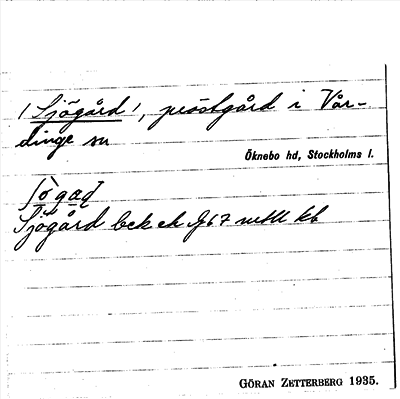 (Sjögård), prästgård i Vår-
dinge sn
Öknebo hd, Stockholms l.
Sjögård bck ek
GÖRAN ZETTERBERG 1935.